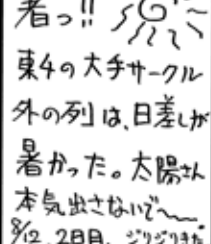 着っ!!
東4の大手サークル
外の列は、日差しが
暑かった。太陽さん
本気出さないで〜〜。
8/12. 2日目. ジリジリきた